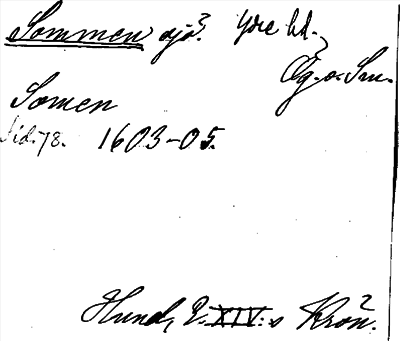 Sommen sjö. Ydre hd.,
Ög. o. Sm.
Somen
Sid. 78. 1603-05.
Hund, E. XIV:s Krön.